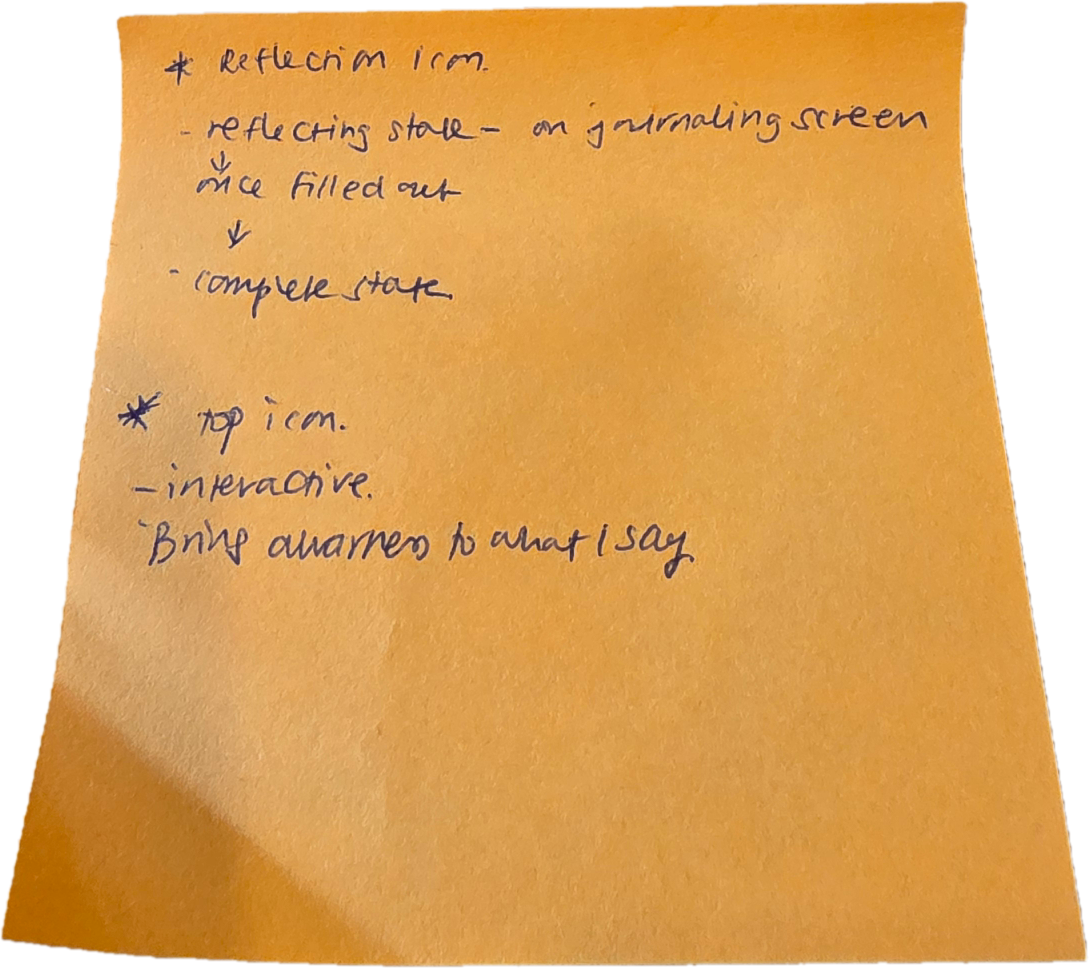 * Reflection icon.
- reflecting state - on journaling screen
↓
once filled out
↓
- complete state.
* top icon.
- interactive.
Bring awarness to what I say